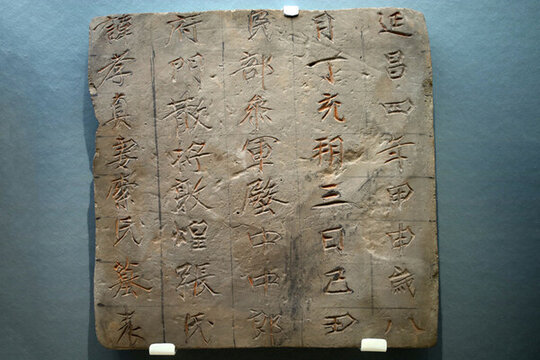 延昌四年甲申歲八
月丁亥朔三日己丑
民部參軍殿中中郎
府門散將敦煌張氏
諱孝真妻索氏墓表